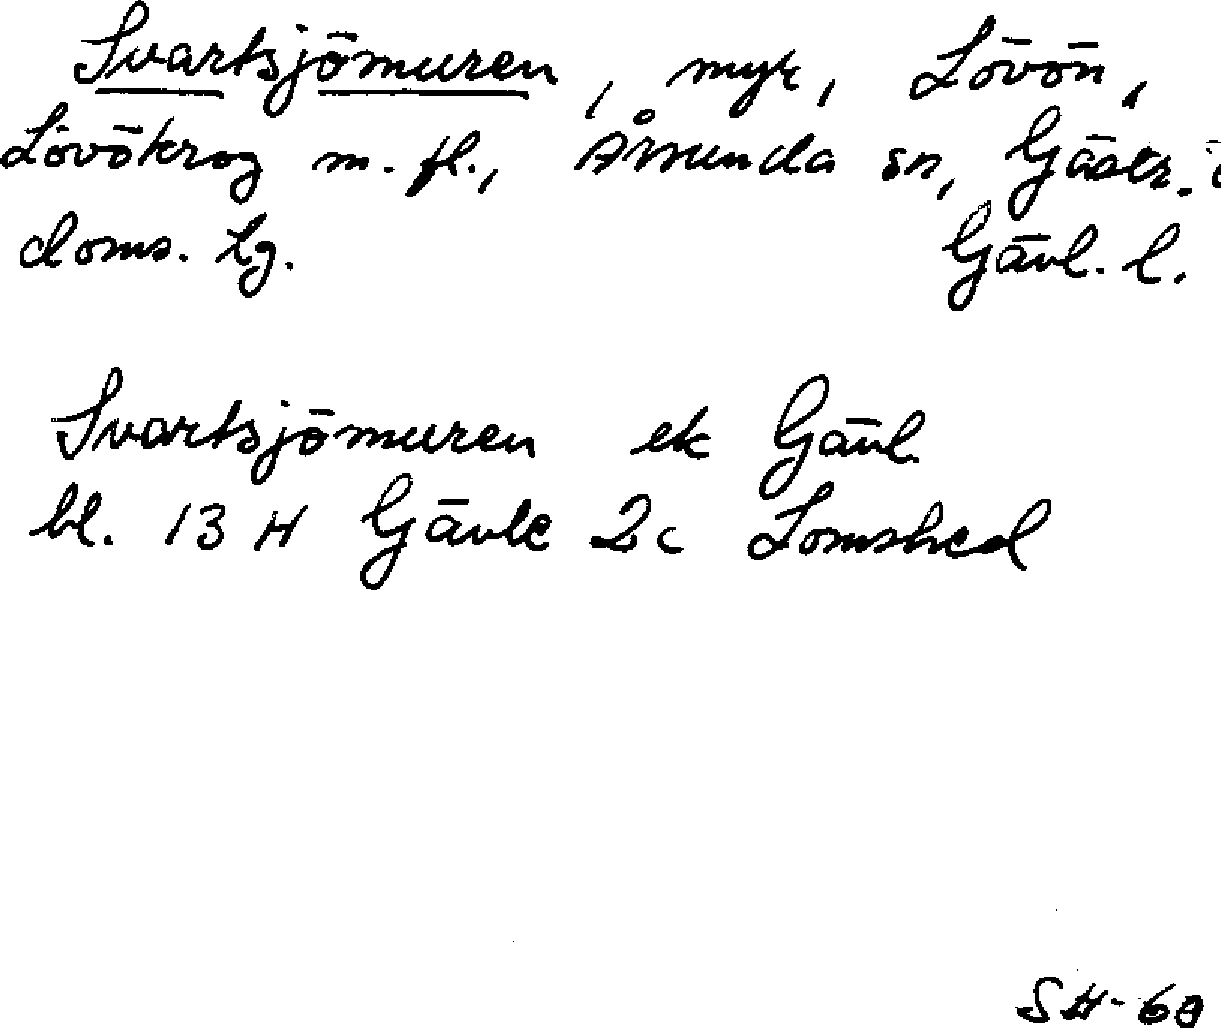 Svartsjömuren, myr, Lövön,
Lövökrog m. fl., Åmunda sn, Gästr. ö
doms. lg.    Gävl. l.
Svartsjömuren ek Gävl.
bl. 13 H Gävle 2c Lomshed
SH-60